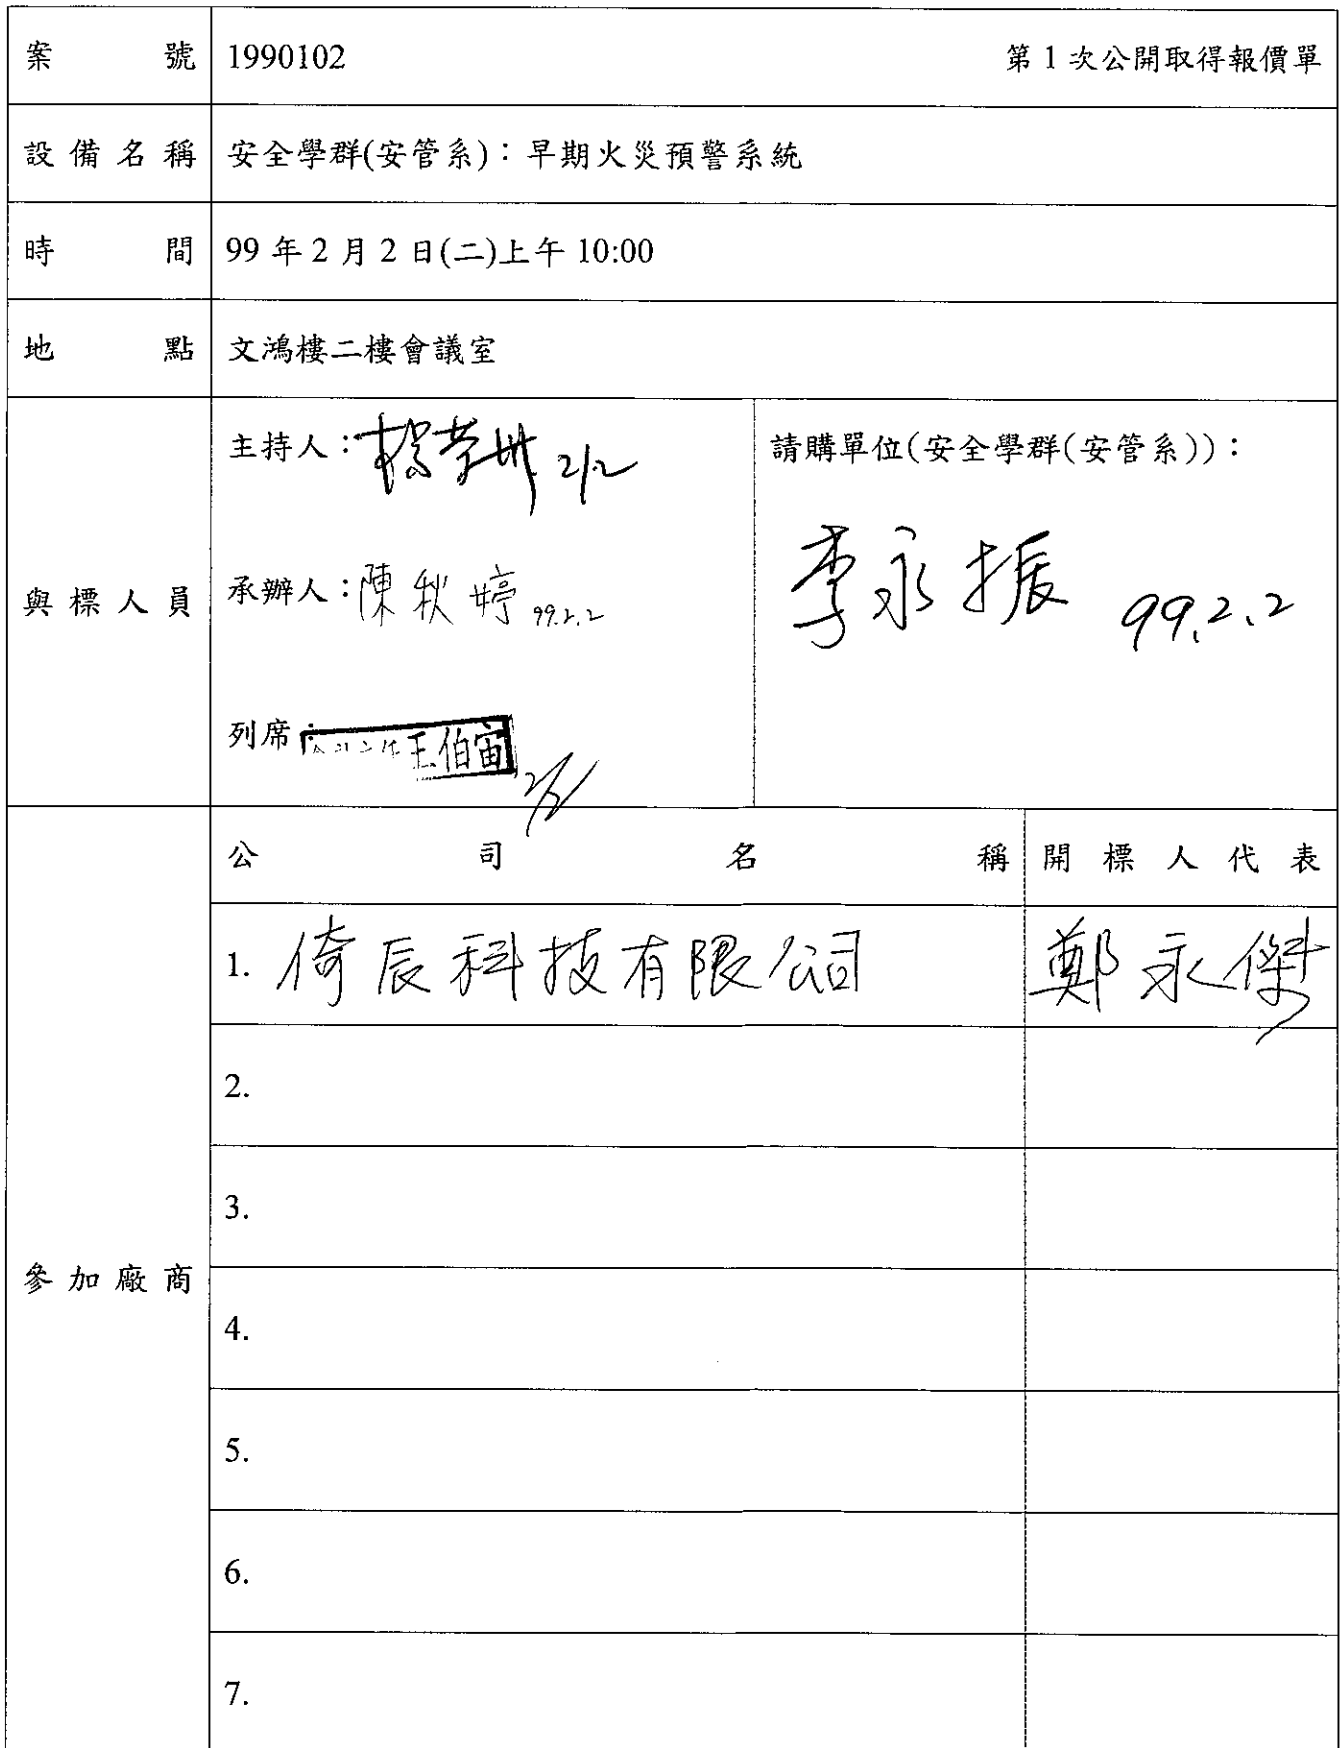 案號 1990102 第 1 次公開取得報價單
設備名稱 安全學群(安管系)：早期火災預警系統
時間 99 年 2 月 2 日(二)上午 10:00
地點 文鴻樓二樓會議室
與標人員
主持人：楊 2/2
承辦人：陳秋婷 99.2.2
列席： 王伯宙 2/2
請購單位(安全學群(安管系))：
李永振 99.2.2
參加廠商
公司名稱 開標人代表
1. 倚辰科技有限公司 鄭永傑
2.
3.
4.
5.
6.
7.